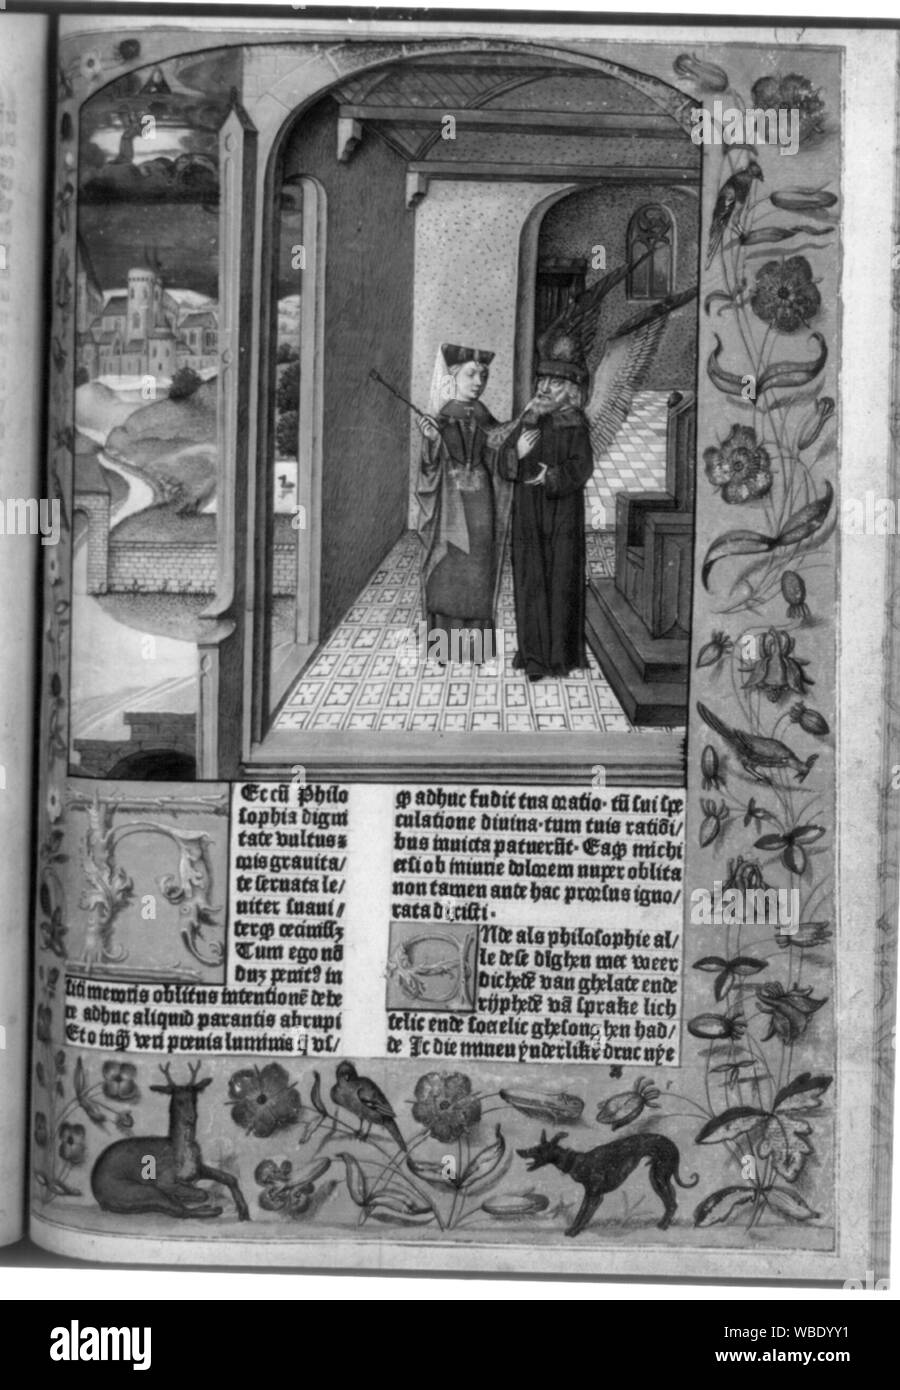 HEc cũ Philo
sophia digni
tate vultus ꝛ
oris grauita/
te seruata le/
niter suaui/
terqꝫ cecinissꝫ
Tum ego nõ
duꝫ penitꝰ in
siti meroris oblitus intentionẽ
adhuc aliquid parantis abrupi
Et o inqͣ veri preuia luminis q̃ vs/
q̃ adhuc fudit tua oratio· tũ sui spe
culatione diuina· tum tuis ratiõi/
bus inuicta patuerũt· Eaqꝫ michi
etsi ob iniurie dolorem nuper oblita
non tamen ante hac prorsus igno/
rata dixisti·
ENde als philosophie al/
le dese dighen met weer
dichede van ghelate ende
rijphede vã sprake lich
telic ende soetelic ghesonghen had/
de Ic die mynen ynderlikẽ druc nye
alamy
Image ID: WBDYY1
www.alamy.com